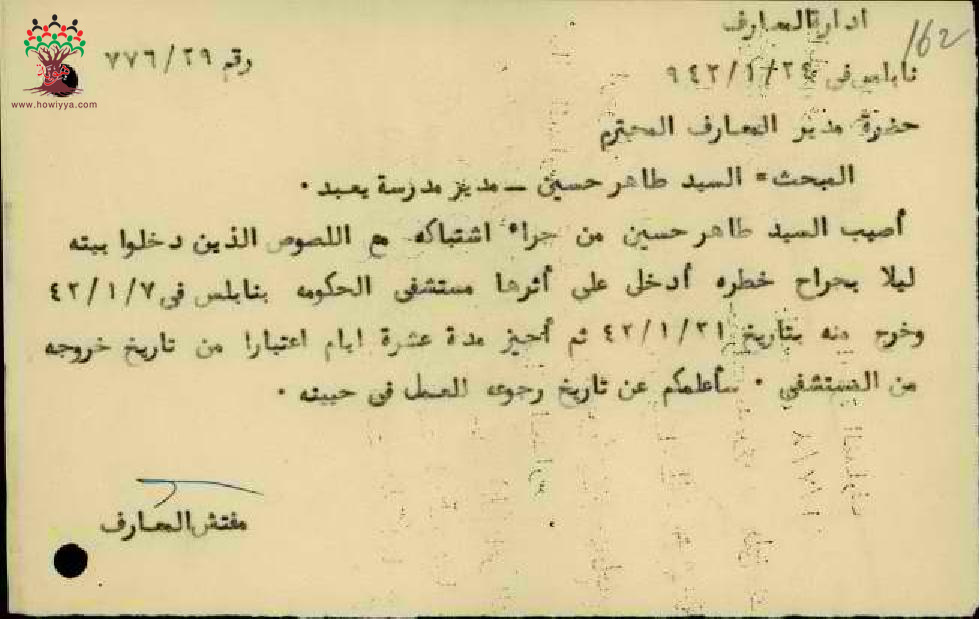 ادارة المعارف
162
نابلس في ٢٤/١/٩٤٢
رقم ٧٧٦/٢٩
هوية
www.howiyya.com
حضرة مدير المعارف المحترم
المبحث = السيد طاهر حسين – مدير مدرسة يعبد ٠
أصيب السيد طاهر حسين من جراء اشتباكه مع اللصوص الذين دخلوا بيته
ليلا بجراح خطره أدخل على أثرها مستشفى الحكومه بنابلس في ٤٢/١/٧
وخرج منه بتاريخ ٤٢/١/٢١ ثم أجيز مدة عشرة ايام اعتبارا من تاريخ خروجه
من المستشفى ٠ سأعلمكم عن تاريخ رجوعه للعمل في حينه ٠
مفتش المعارف